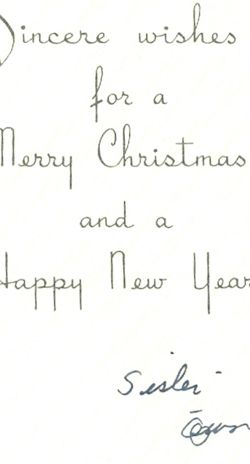 Sincere wishes
for a
Merry Christmas
and a
Happy New Year
Sisler